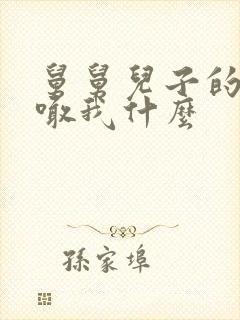 舅舅兒子的
噉我什麼
孫家埠